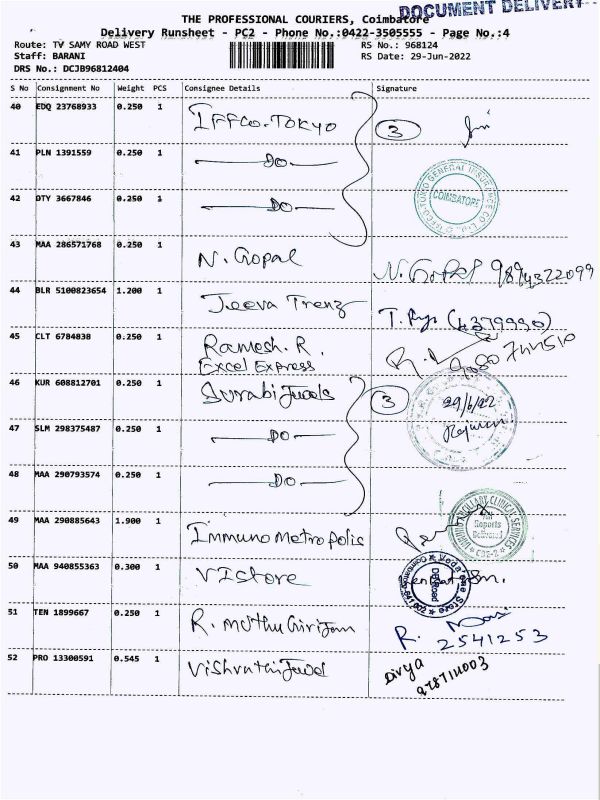 DOCUMENT DELIVERY
THE PROFESSIONAL COURIERS, Coimbatore
Delivery Runsheet - PC2 - Phone No.:0422-3505555 - Page No.:4
Route: TV SAMY ROAD WEST RS No.: 968124
Staff: BARANI RS Date: 29-Jun-2022
DRS No.: DCJB96812404
S No Consignment No Weight PCS Consignee Details Signature
40 EDQ 23768933 0.250 1 IFFCO-TOKYO 3
41 PLN 1391559 0.250 1 DO
42 DTY 3667846 0.250 1 DO
COIMBATORE
43 MAA 286571768 0.250 1 N. Gopal N. Gopal 9894322099
44 BLR 5100823654 1.200 1 Jeeva Trenz
45 CLT 6784838 0.250 1 Ramesh. R.
Excel Express
46 KUR 608812701 0.250 1 Surabi Jewels 3 29/6/22
47 SLM 298375487 0.250 1 DO
48 MAA 290793574 0.250 1 DO
49 MAA 290885643 1.900 1 Immuno Metropolis
Reports
Delivered
50 MAA 940855363 0.300 1 VIstore
51 TEN 1899667 0.250 1 R. Muthu R.
2541253
52 PRO 13300591 0.545 1 Divya